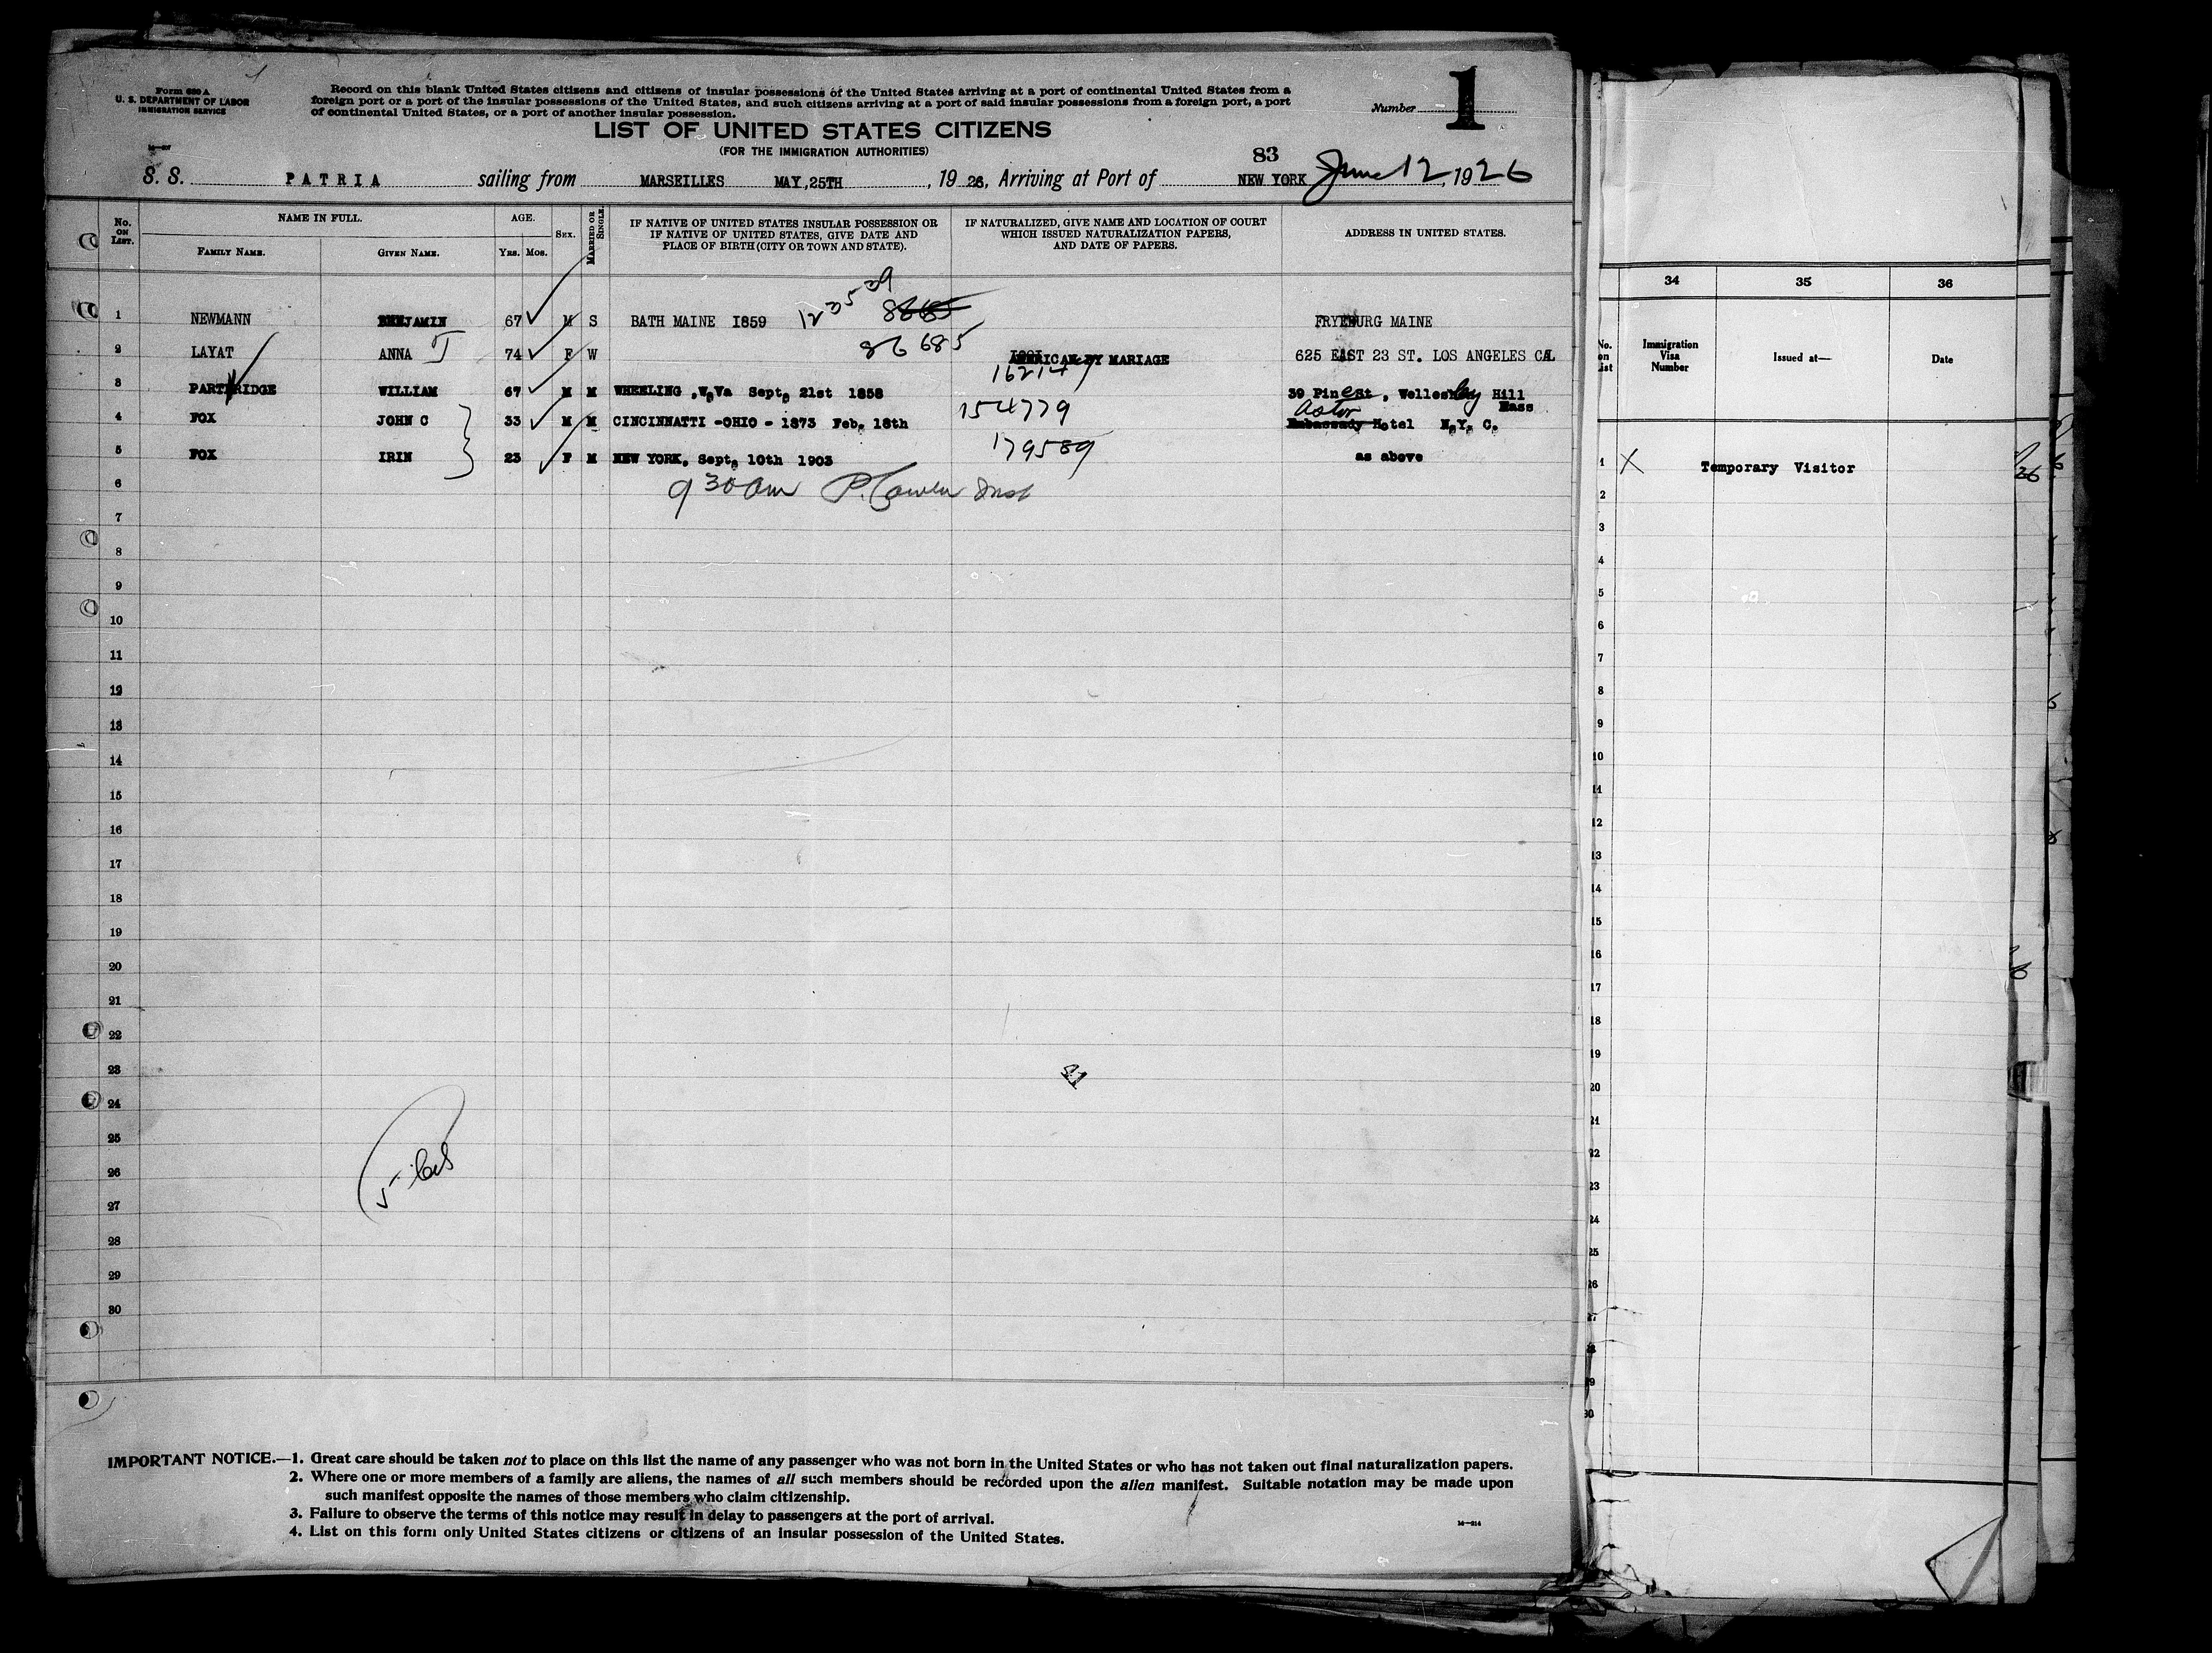 Form 630 A
U. S. DEPARTMENT OF LABOR
IMMIGRATION SERVICE
Record on this blank United States citizens and citizens of insular possessions of the United States arriving at a port of continental United States from a
foreign port or a port of the insular possessions of the United States, and such citizens arriving at a port of said insular possessions from a foreign port, a port
of continental United States, or a port of another insular possession.
Number 1
LIST OF UNITED STATES CITIZENS
(FOR THE IMMIGRATION AUTHORITIES)
83
S. S. PATRIA sailing from MARSEILLES MAY, 25TH, 19 26, Arriving at Port of NEW YORK June 12, 1926
No. ON LIST.
NAME IN FULL.
FAMILY NAME. GIVEN NAME.
AGE.
YRS. MOS.
SEX.
MARRIED OR SINGLE.
IF NATIVE OF UNITED STATES INSULAR POSSESSION OR
IF NATIVE OF UNITED STATES, GIVE DATE AND
PLACE OF BIRTH (CITY OR TOWN AND STATE).
IF NATURALIZED, GIVE NAME AND LOCATION OF COURT
WHICH ISSUED NATURALIZATION PAPERS,
AND DATE OF PAPERS.
ADDRESS IN UNITED STATES.
1 NEWMANN BENJAMIN 67 M S BATH MAINE I859 FRYEBURG MAINE
2 LAYAT ANNA J 74 F W 86685 AMERICAN BY MARIAGE 625 EAST 23 ST. LOS ANGELES CAL
3 PARTRIDGE WILLIAM 67 M M WHEELING ,W.Va Sept. 21st 1858 162147 39 Pine St , Wellesley Hill
Mass
4 FOX JOHN C 33 M M CINCINNATTI -OHIO - 1873 Feb. 18th 154779 Astor Embassady Hotel N.Y. C.
5 FOX IRIN 23 F M NEW YORK, Sept. 10th 1903 179589 as above
6 9 30 am
7
8
9
10
11
12
13
14
15
16
17
18
19
20
21
22
23
24
25
26
27
28
29
30
IMPORTANT NOTICE.—1. Great care should be taken not to place on this list the name of any passenger who was not born in the United States or who has not taken out final naturalization papers.
2. Where one or more members of a family are aliens, the names of all such members should be recorded upon the alien manifest. Suitable notation may be made upon
such manifest opposite the names of those members who claim citizenship.
3. Failure to observe the terms of this notice may result in delay to passengers at the port of arrival.
4. List on this form only United States citizens or citizens of an insular possession of the United States.
34 35 36
No. on List
Immigration Visa Number
Issued at—
Date
1 X Temporary Visitor
2
3
4
5
6
7
8
9
10
11
12
13
14
15
16
17
18
19
20
21
22
23
24
25
26
27
28
29
30